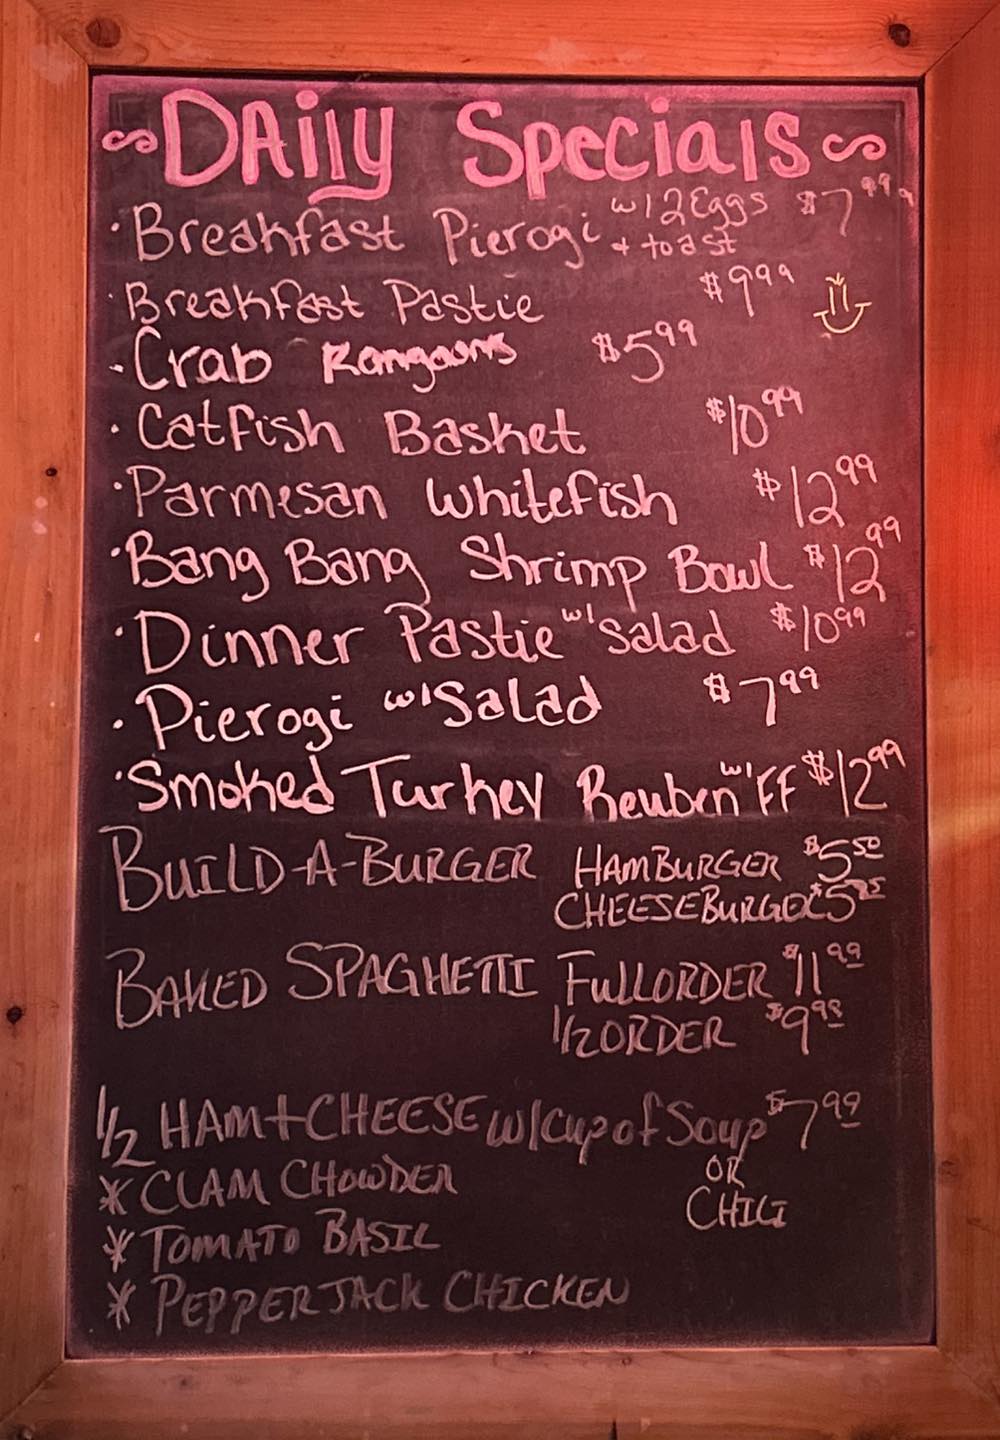 ~Daily Specials~
· Breakfast Pierogi w/ 2 Eggs + toast $7.99
· Breakfast Pastie $9.99
· Crab Rangoons $5.99
· Catfish Basket $10.99
· Parmesan Whitefish $12.99
· Bang Bang Shrimp Bowl $12.99
· Dinner Pastie w/ Salad $10.99
· Pierogi w/ Salad $7.99
· Smoked Turkey Reuben w/ FF $12.99
BUILD-A-BURGER HAMBURGER $5.50
CHEESEBURGER
BAKED SPAGHETTI FULL ORDER $11.99
1/2 ORDER
1/2 HAM + CHEESE w/ Cup of Soup $7.99
OR
CHILI
* CLAM CHOWDER
* TOMATO BASIL
* PEPPERJACK CHICKEN